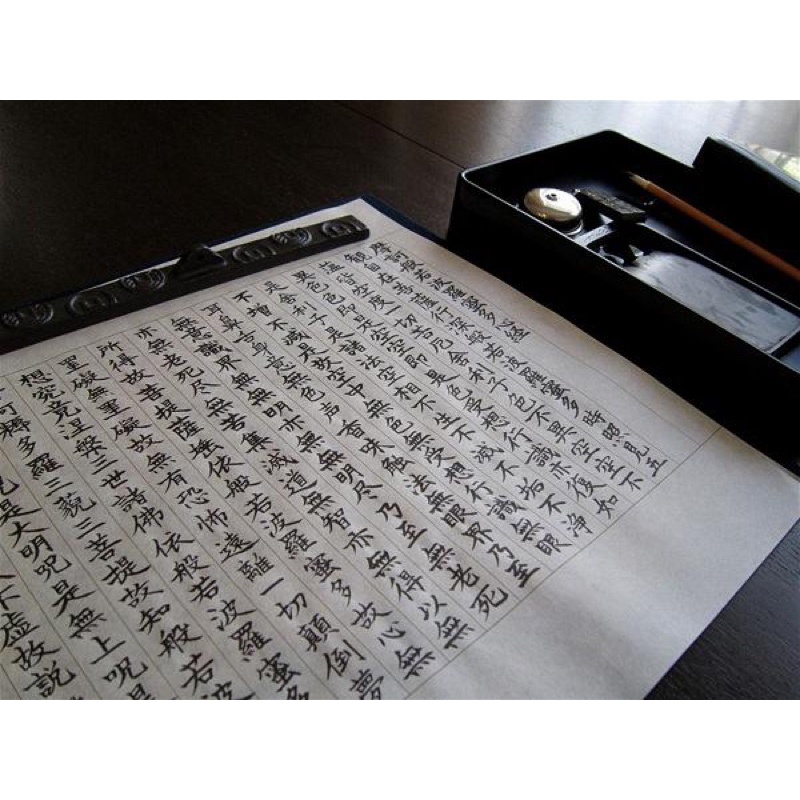 摩訶般若波羅蜜多心經
観自在菩薩行深般若波羅蜜多時照見五
蘊皆空度一切苦厄舎利子色不異空空不
異色色即是空空即是色受想行識亦復如
是舎利子是諸法空相不生不滅不垢不浄
不増不減是故空中無色無受想行識無眼
耳鼻舌身意無色声香味触法無眼界乃至
無意識界無無明亦無無明尽乃至無老死
亦無老死尽無苦集滅道無智亦無得以無
所得故菩提薩埵依般若波羅蜜多故心無
罣礙無罣礙故無有恐怖遠離一切顛倒夢
想究竟涅槃三世諸佛依般若波羅蜜多
阿耨多羅三藐三菩提故知般若波
呪是大明呪是無上呪是
不虚故説